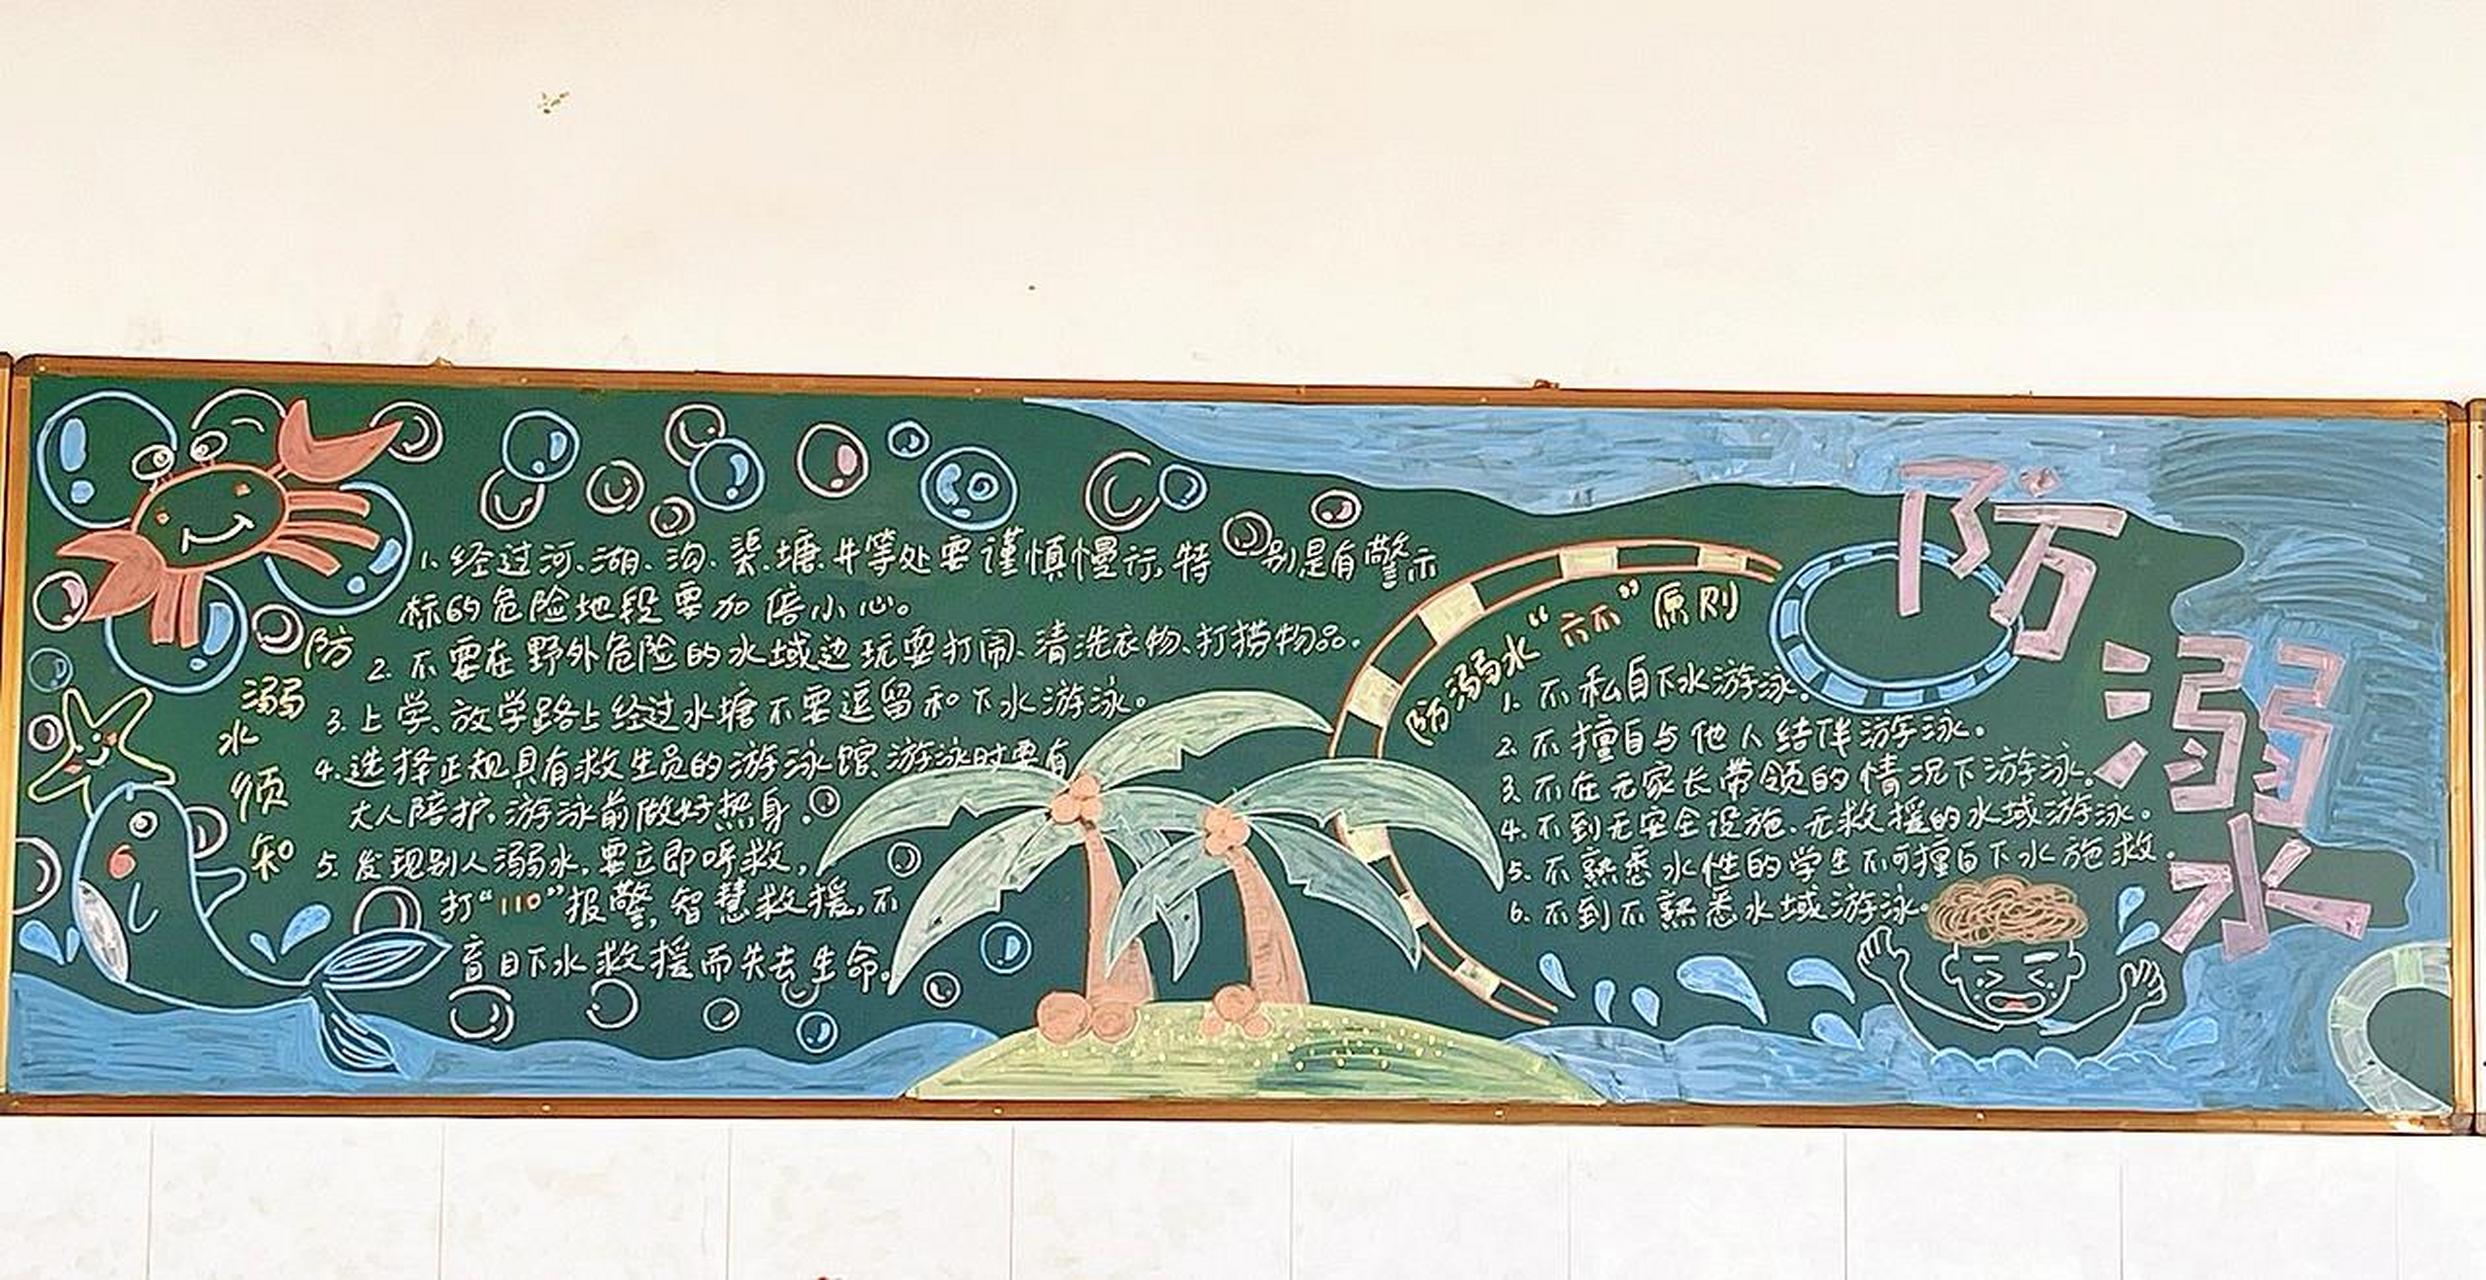 防溺水须知
1.经过河、湖、沟、渠、塘、井等处要谨慎慢行,特别是有警示
标的危险地段要加倍小心。
2.不要在野外危险的水域边玩耍打闹、清洗衣物、打捞物品。
3.上学、放学路上经过水塘不要逗留和下水游泳。
4.选择正规具有救生员的游泳馆、游泳时要有
大人陪护,游泳前做好热身。
5.发现别人溺水,要立即呼救,
打“110”报警,智慧救援,不
盲目下水救援而失去生命。
防溺水“六不”原则
1.不私自下水游泳。
2.不擅自与他人结伴游泳。
3.不在无家长带领的情况下游泳。
4.不到无安全设施、无救援的水域游泳。
5.不熟悉水性的学生不可擅自下水施救。
6.不到不熟悉水域游泳。
防溺水